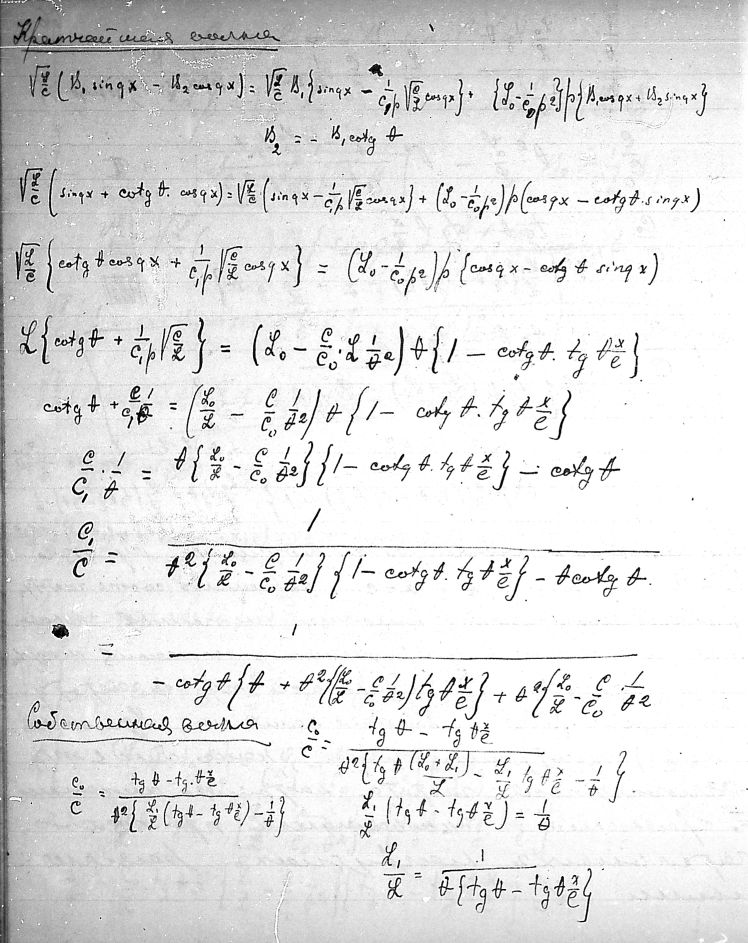 Кратчайшая волна
√(ℒ/C) (B₁ sin qx − B₂ cos qx) = √(ℒ/C) B₁ {sin qx − 1/(C₁p) √(C/ℒ) cos qx} + {ℒ₀ − 1/(C₀p²)} p {B₁ cos qx + B₂ sin qx}
B₂ = − B₁ cotg θ
√(ℒ/C) (sin qx + cotg θ. cos qx) = √(ℒ/C) {sin qx − 1/(C₁p) √(C/ℒ) cos qx} + (ℒ₀ − 1/(C₀p²)) p (cos qx − cotg θ. sin qx)
√(ℒ/C) {cotg θ cos qx + 1/(C₁p) √(C/ℒ) cos qx} = (ℒ₀ − 1/(C₀p²)) p {cos qx − cotg θ sin qx)
ℒ {cotg θ + 1/(C₁p) √(C/ℒ)} = (ℒ₀ − C/C₀. ℒ 1/θ²) θ {1 − cotg θ. tg θ x/e}
cotg θ + C/C₁ 1/θ = (ℒ₀/ℒ − C/C₀ 1/θ²) θ {1 − cotg θ. tg θ x/e}
C/C₁ · 1/θ = θ {ℒ₀/ℒ − C/C₀ 1/θ²} {1 − cotg θ. tg θ x/e} − cotg θ
C₁/C = 1/(θ² {ℒ₀/ℒ − C/C₀ 1/θ²} {1 − cotg θ. tg θ x/e} − θ cotg θ.)
= 1/(− cotg θ {θ + θ² (ℒ₀/ℒ − C/C₀ 1/θ²) tg θ x/e} + θ² {ℒ₀/ℒ − C/C₀ · 1/θ²)
Собственная волна
C₀/C = (tg θ − tg θ x/e)/(θ² {tg θ (ℒ₀ + ℒ₁)/ℒ − ℒ₁/ℒ tg θ x/e − 1/θ})
C₀/C = (tg θ − tg. θ x/e)/(θ² {ℒ₁/ℒ (tg θ − tg θ x/e) − 1/θ})
ℒ₁/ℒ (tg θ − tg θ x/e) = 1/θ
ℒ₁/ℒ = 1/(θ {tg θ − tg θ x/e})